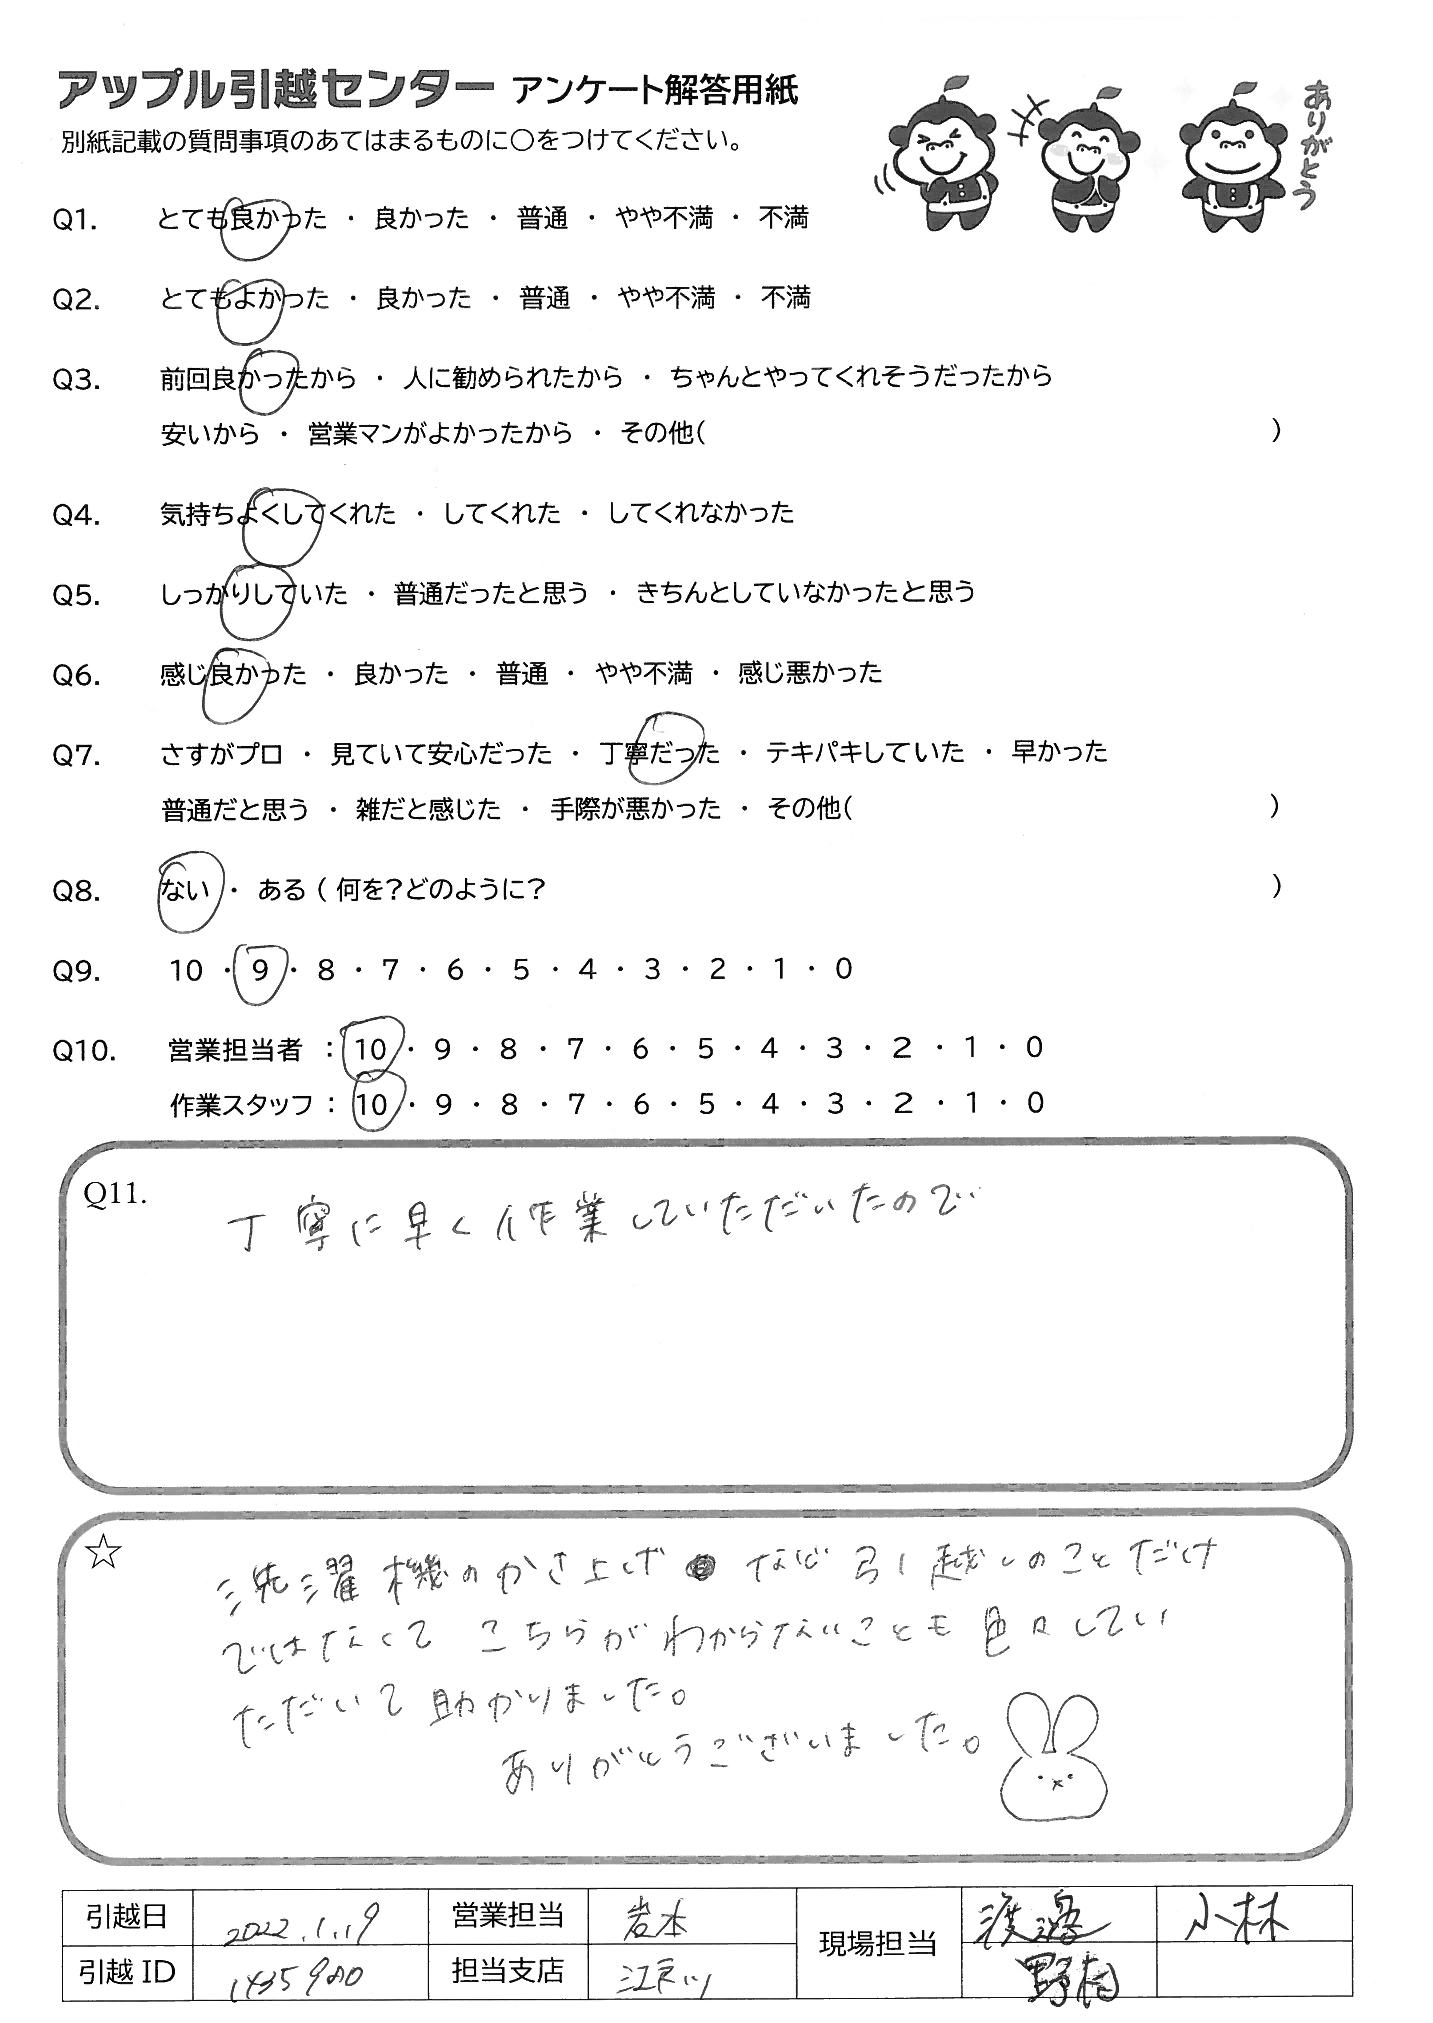 アップル引越センター アンケート解答用紙
ありがとう
別紙記載の質問事項のあてはまるものに○をつけてください。
Q1. とても良かった ・ 良かった ・ 普通 ・ やや不満 ・ 不満
Q2. とてもよかった ・ 良かった ・ 普通 ・ やや不満 ・ 不満
Q3. 前回良かったから ・ 人に勧められたから ・ ちゃんとやってくれそうだったから
安いから ・ 営業マンがよかったから ・ その他( )
Q4. 気持ちよくしてくれた ・ してくれた ・ してくれなかった
Q5. しっかりしていた ・ 普通だったと思う ・ きちんとしていなかったと思う
Q6. 感じ良かった ・ 良かった ・ 普通 ・ やや不満 ・ 感じ悪かった
Q7. さすがプロ ・ 見ていて安心だった ・ 丁寧だった ・ テキパキしていた ・ 早かった
普通だと思う ・ 雑だと感じた ・ 手際が悪かった ・ その他( )
Q8. ない ・ ある ( 何を?どのように? )
Q9. 10 ・ 9 ・ 8 ・ 7 ・ 6 ・ 5 ・ 4 ・ 3 ・ 2 ・ 1 ・ 0
Q10. 営業担当者 : 10 ・ 9 ・ 8 ・ 7 ・ 6 ・ 5 ・ 4 ・ 3 ・ 2 ・ 1 ・ 0
作業スタッフ : 10 ・ 9 ・ 8 ・ 7 ・ 6 ・ 5 ・ 4 ・ 3 ・ 2 ・ 1 ・ 0
Q11.
丁寧に早く作業していただいたので
☆
洗濯機のかさ上げ など 引っ越しのことだけ
ではなくて こちらがわからないことも色々してい
ただいて助かりました。
ありがとうございました。
引越日 2022.1.19 営業担当 岩本 現場担当 渡邊 小林
引越ID 1435980 担当支店 江戸川 野村